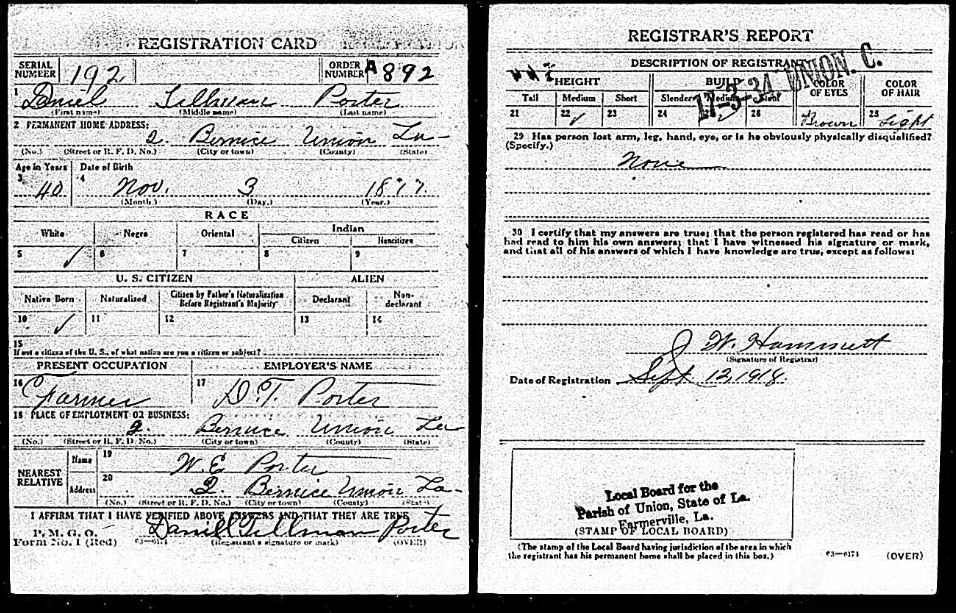 REGISTRATION CARD
SERIAL NUMBER 192 ORDER NUMBER A892
1 Daniel Tillman Porter
(First name) (Middle name) (Last name)
2 PERMANENT HOME ADDRESS:
2 Bernice Union La-
(No.) (Street or R. F. D. No.) (City or town) (County) (State)
Age in Years Date of Birth
3 40 4 Nov. 3 1877
(Month.) (Day.) (Year.)
RACE
White Negro Oriental Indian
Citizen Noncitizen
5 ✓ 6 7 8 9
U. S. CITIZEN ALIEN
Native Born Naturalized Citizen by Father's Naturalization Before Registrant's Majority Declarant Non-declarant
10 ✓ 11 12 13 14
15
If not a citizen of the U. S., of what nation are you a citizen or subject?
PRESENT OCCUPATION EMPLOYER'S NAME
16 Farmer 17 D. T. Porter
18 PLACE OF EMPLOYMENT OR BUSINESS:
2. Bernice Union La
(No.) (Street or R. F. D. No.) (City or town) (County) (State)
NEAREST RELATIVE Name 19 W. E Porter
Address 20 2. Bernice Union La-
(No.) (Street or R. F. D. No.) (City or town) (County) (State)
I AFFIRM THAT I HAVE VERIFIED ABOVE ANSWERS AND THAT THEY ARE TRUE
P. M. G. O.
Form No. 1 (Red) 03—6171 Daniell Tillman Porter
(Registrant's signature or mark) (OVER)
REGISTRAR'S REPORT
DESCRIPTION OF REGISTRANT
17-3-34. UNION. C.
HEIGHT BUILD COLOR OF EYES COLOR OF HAIR
Tall Medium Short Slender Medium Stout
21 22 ✓ 23 24 Brown 28 Light
29 Has person lost arm, leg, hand, eye, or is he obviously physically disqualified?
(Specify.)
None
30 I certify that my answers are true; that the person registered has read or has
had read to him his own answers; that I have witnessed his signature or mark,
and that all of his answers of which I have knowledge are true, except as follows:
J. W. Hammett
(Signature of Registrar)
Date of Registration Sept. 12, 1918.
Local Board for the
Parish of Union, State of La.
Farmerville, La.
(STAMP OF LOCAL BOARD)
(The stamp of the Local Board having jurisdiction of the area in which
the registrant has his permanent home shall be placed in this box.)
03—6171 (OVER)